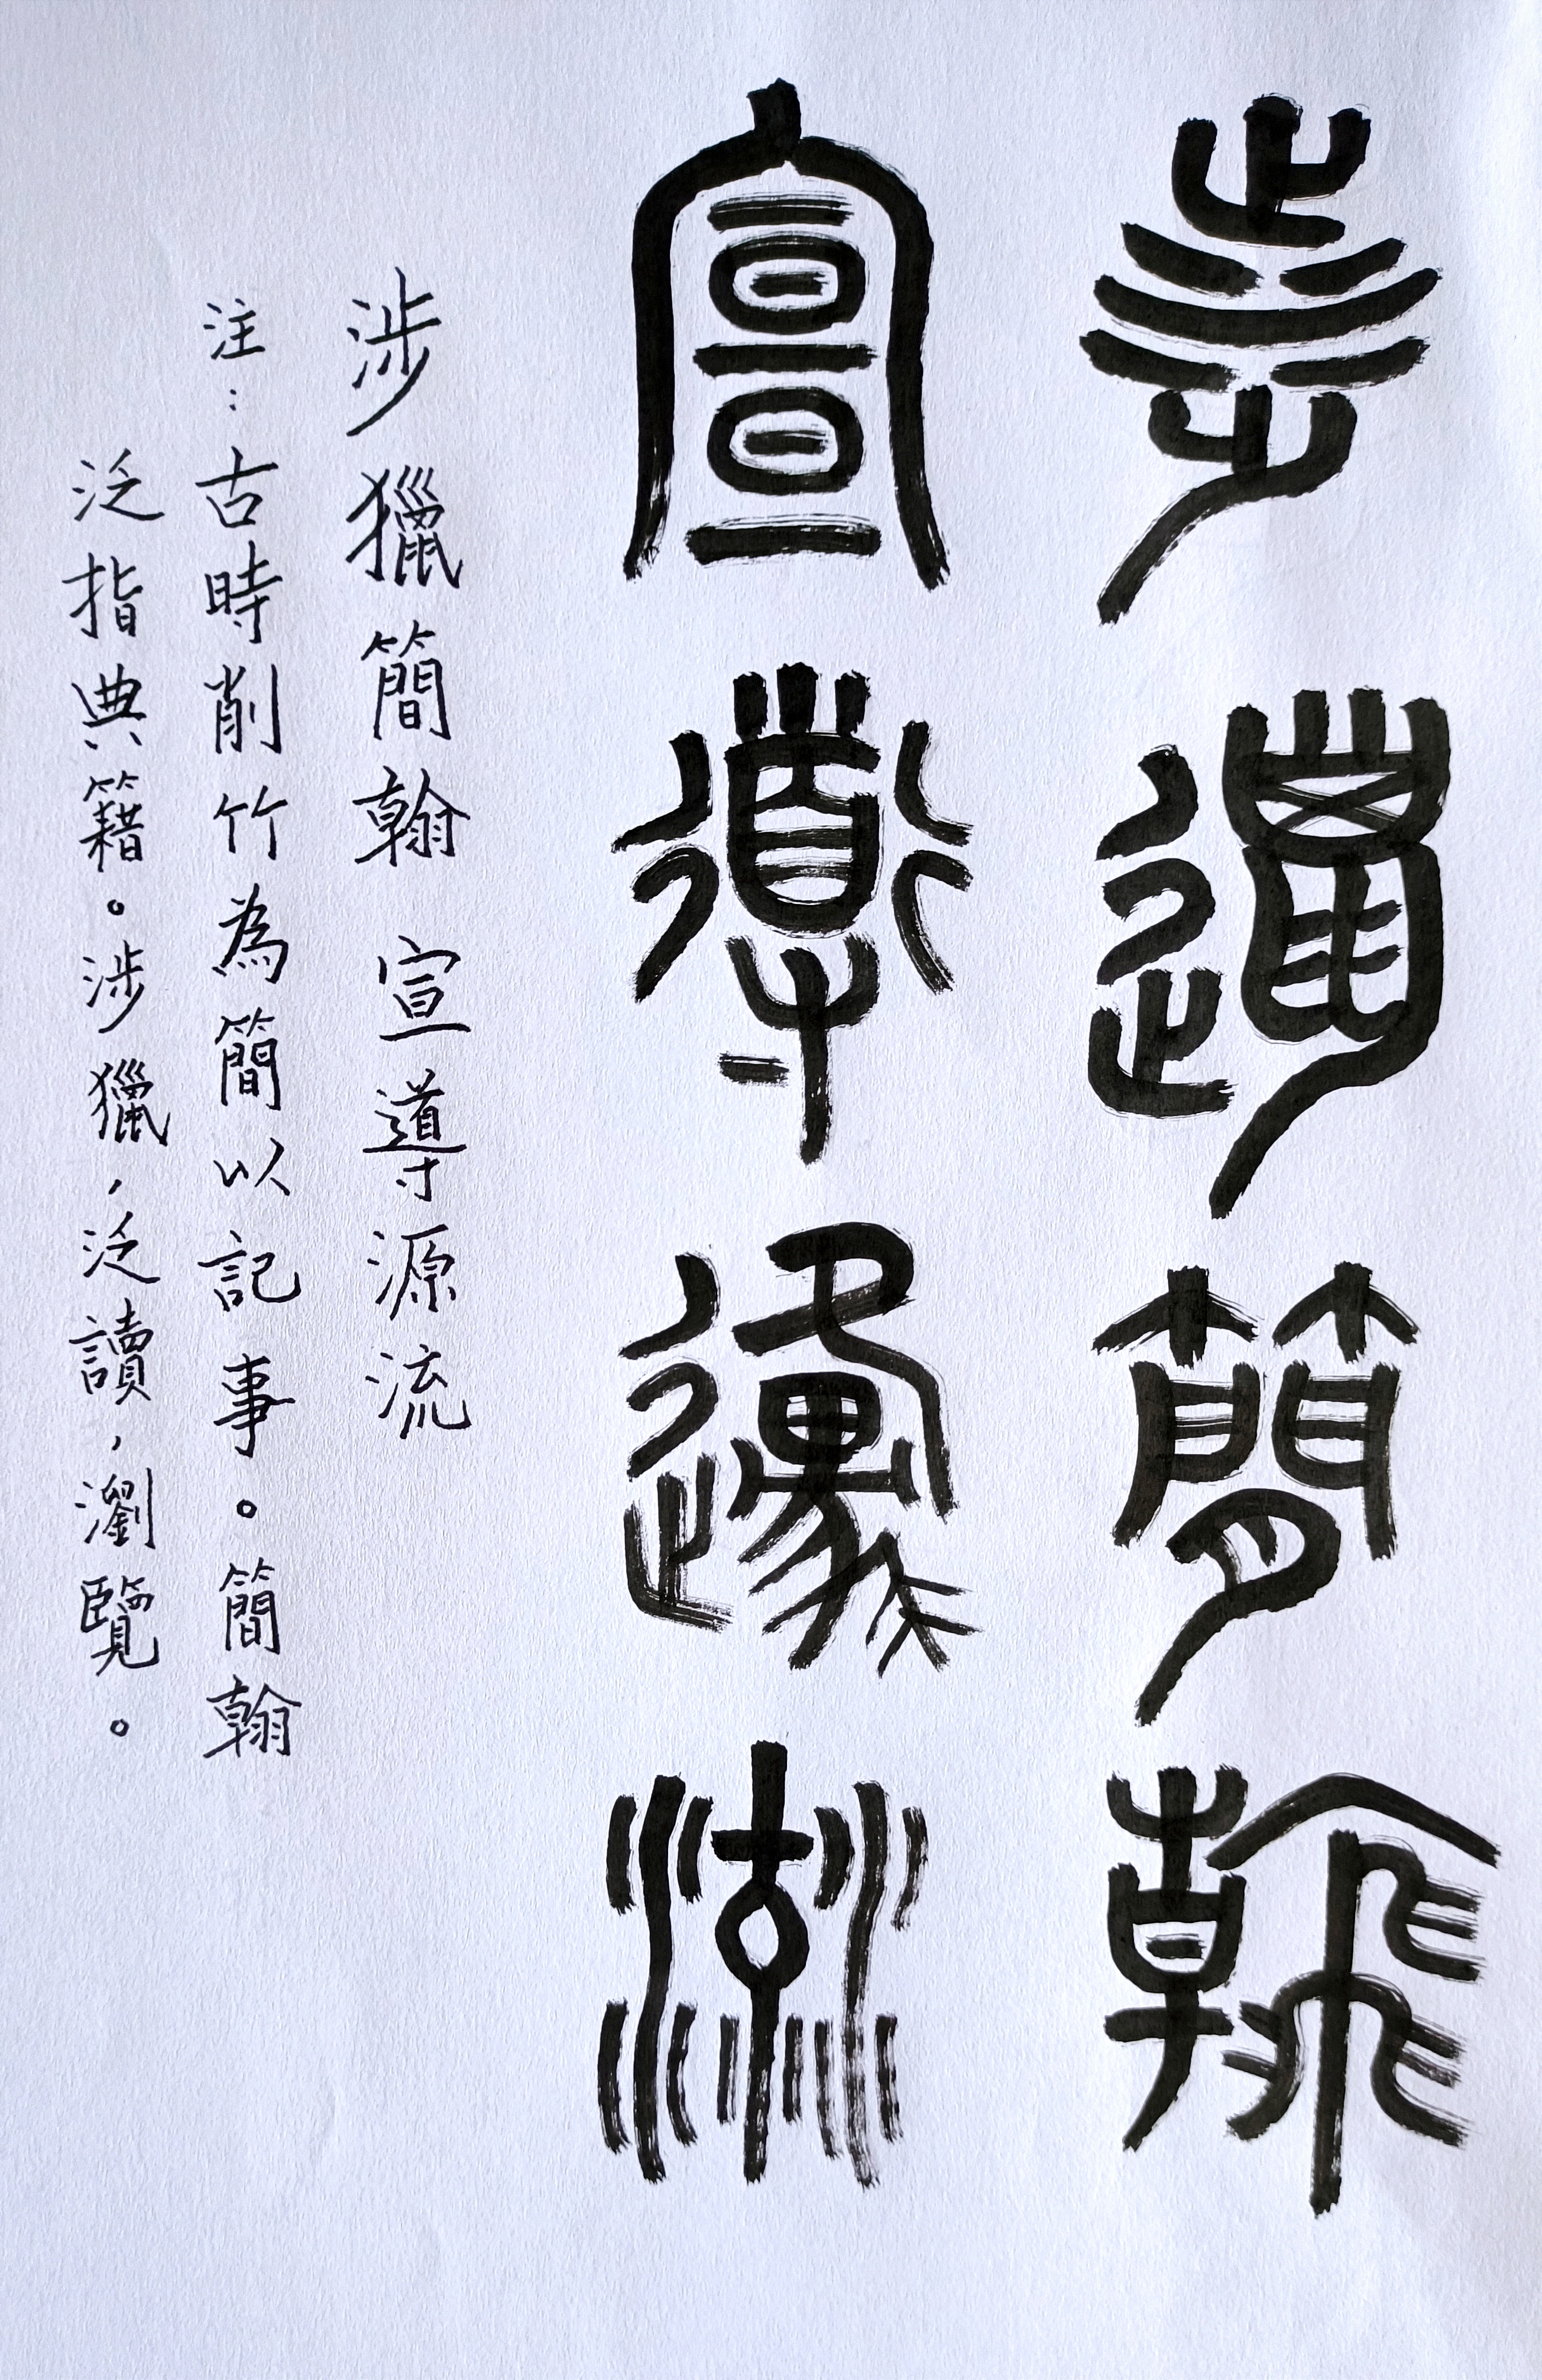 涉獵簡翰
宣導源流
涉獵簡翰 宣導源流
注：古時削竹為簡以記事。簡翰
泛指典籍。涉獵，泛讀，瀏覽。